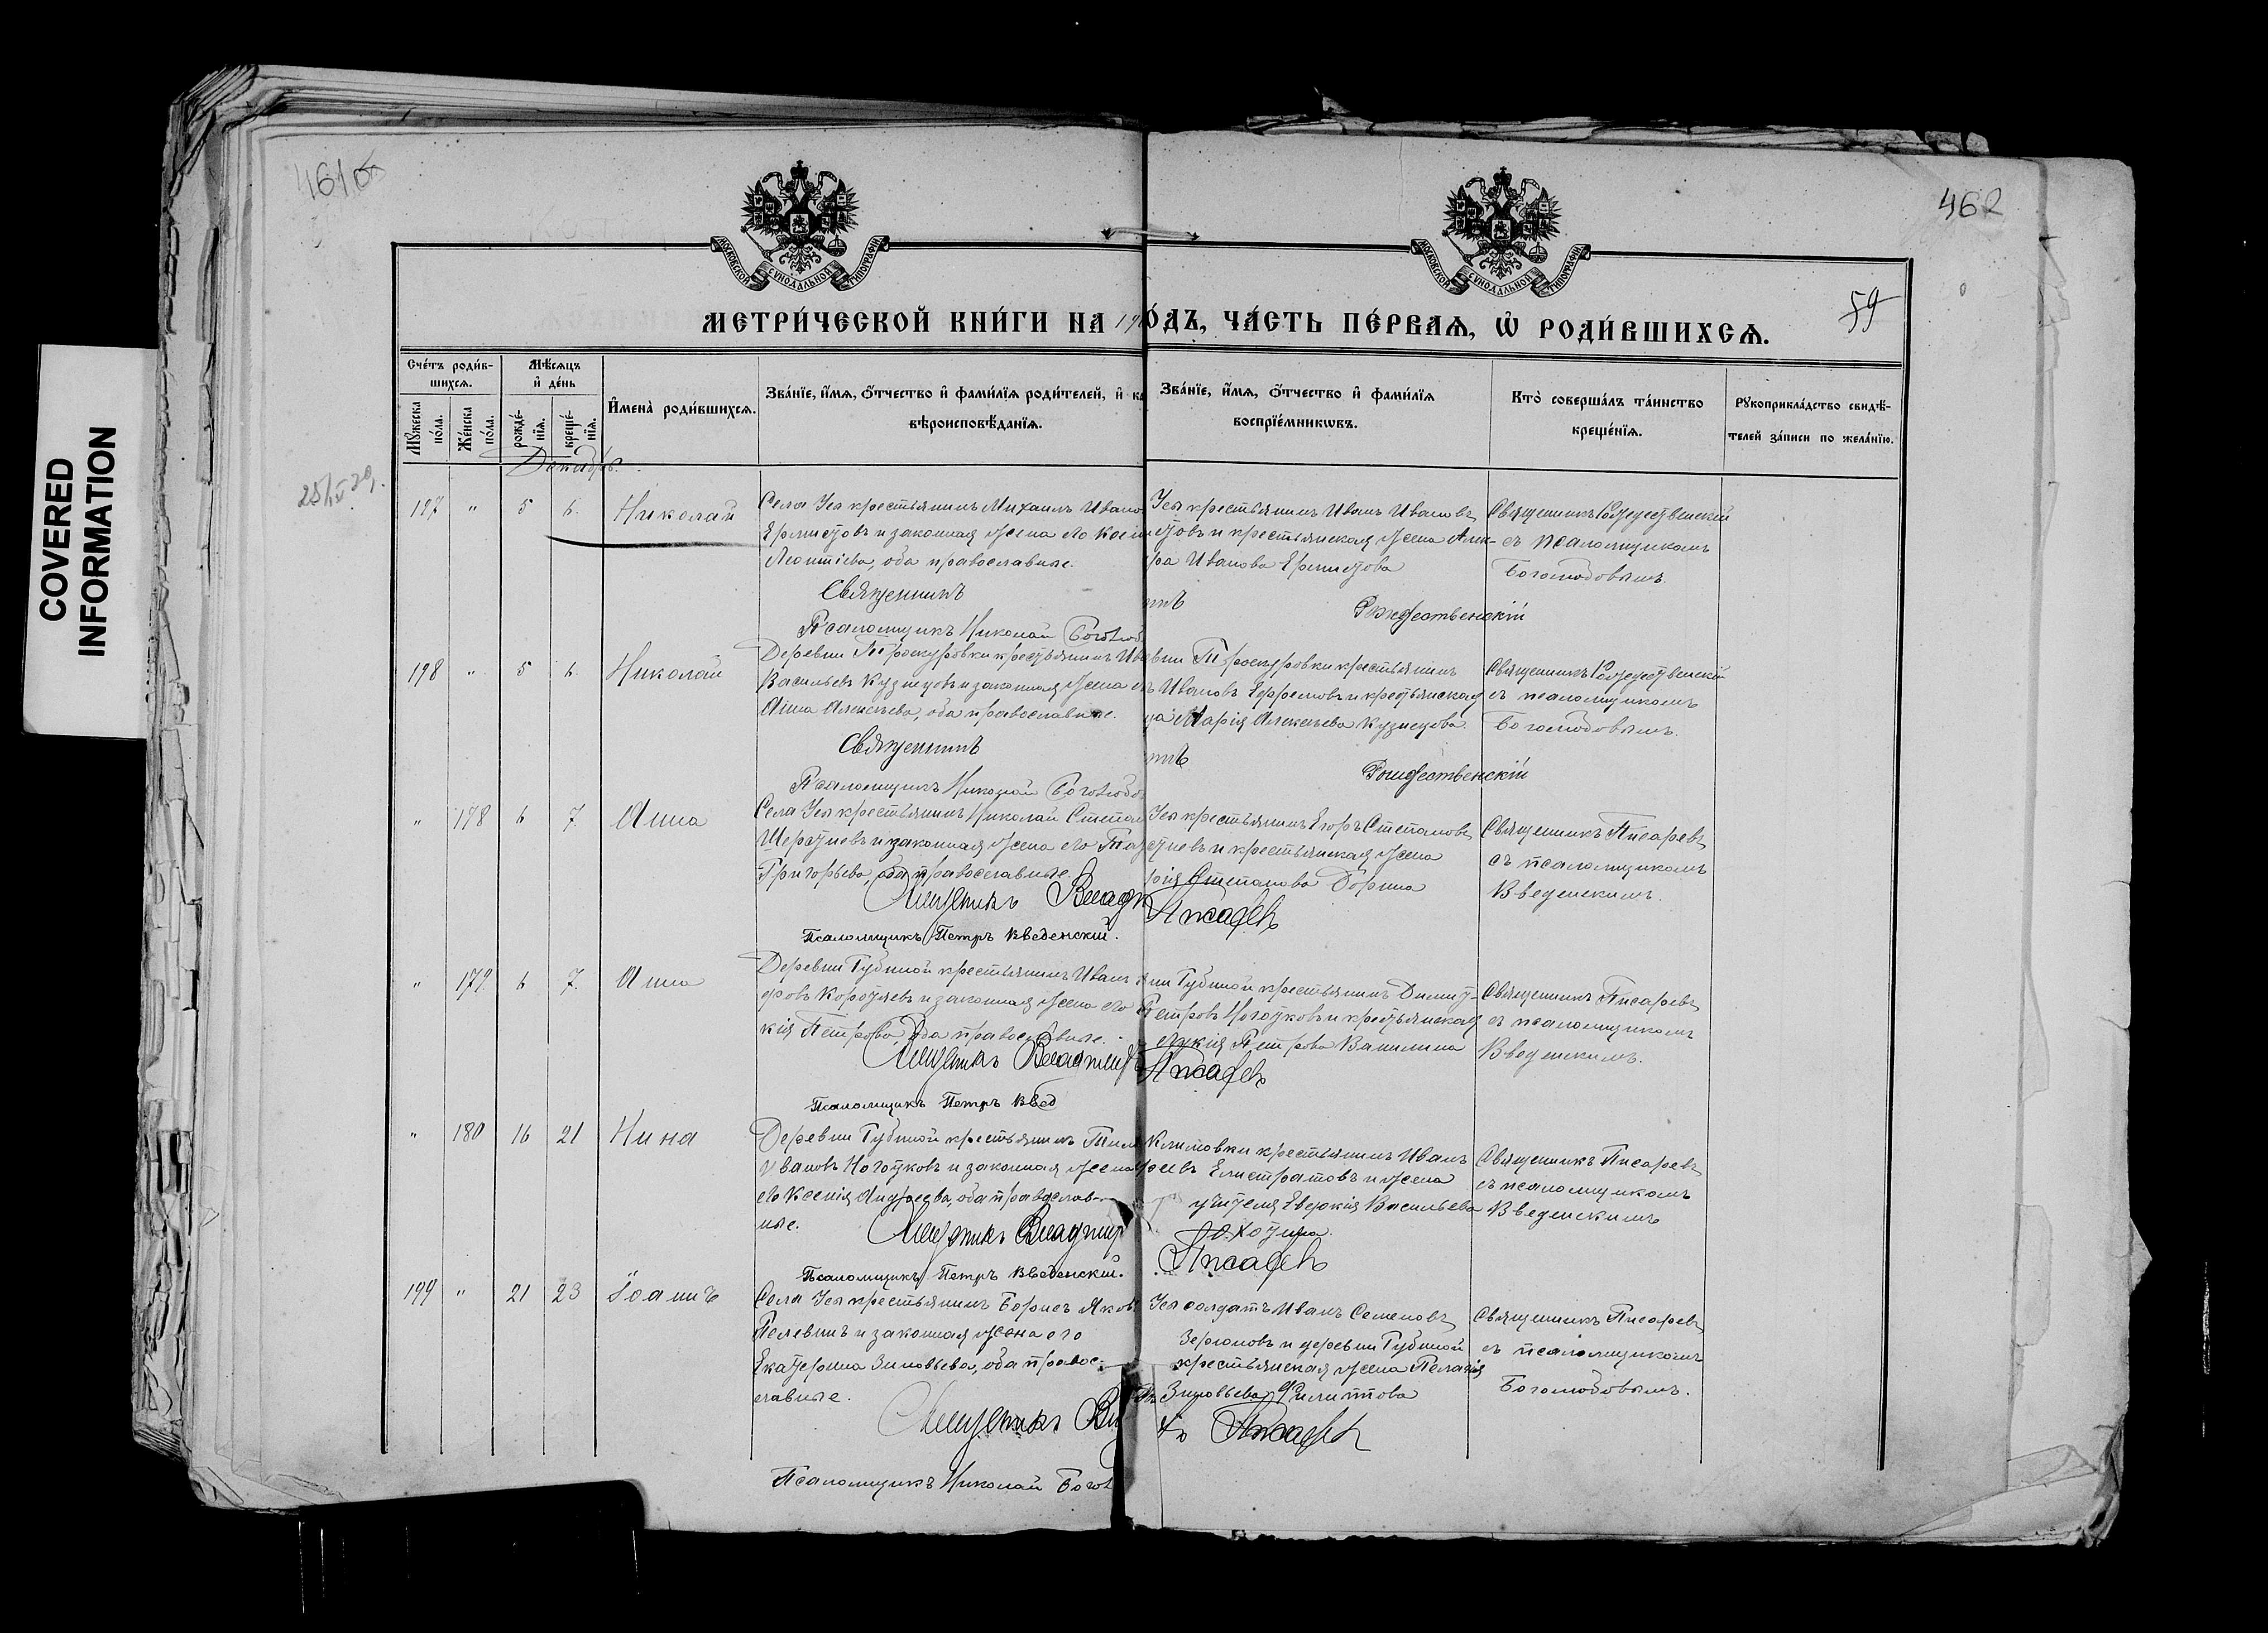 COVERED
INFORMATION
461об
462
59
МОСКОВСКОЙ СѴНОДАЛЬНОЙ ТИПОГРАФІИ
МОСКОВСКОЙ СѴНОДАЛЬНОЙ ТИПОГРАФІИ
МЕТРИ́ЧЕСКОЙ КНИ́ГИ НА 19
О́ДЪ, ЧА́СТЬ ПЕ́РВАѦ, Ѡ҆ РОДИ́ВШИХСѦ.
Сче́тъ роди́в-
шихсѧ.
Мѣ́сѧцъ
и҆ де́нь
Мꙋ́жеска
по́ла.
Же́нска
по́ла.
рожде́-
нїѧ.
креще́-
нїѧ.
И҆мена̀ роди́вшихсѧ.
Зва́нїе, и҆́мѧ, ѻ҆́тчество и҆ фами́лїѧ роди́телей, и҆ ка
вѣроисповѣ́данїѧ.
Зва́нїе, и҆́мѧ, ѻ҆́тчество и҆ фами́лїѧ
воспрїе́мникѡвъ.
Кто̀ соверша́лъ та́инство
креще́нїѧ.
Рꙋкоприкла́дство свидѣ́-
телей за́писи по жела́нїю.
Декабрь.
197 " 5 6. Николай
Села Уса крестьянинъ Михаилъ Ивано
Ермистовъ и законная жена его Ксен
Леонтіева, оба православные.
Священникъ
Псаломщикъ Николай Боголюб
Уса крестьянинъ Иванъ Ивановъ
стовъ и крестьянская жена Алек-
ра Иванова Ермистова
никъ Рождественскій
Священникъ Рождественскій
съ псаломщикомъ
Боголюбовымъ.
198 " 5 6. Николай
Деревни Проскуровки крестьянинъ Ив
Васильевъ Кузнецовъ и законная жена е
Анна Алексѣева, оба православные.
Священникъ
Псаломщикъ Николай Боголюбо
евни Проскуровки крестьянинъ
ъ Ивановъ Ефремовъ и крестьянская
ца Марія Алексѣева Кузнецова.
никъ Рождественскій
Священникъ Рождественскій
съ псаломщикомъ
Боголюбовымъ.
" 178 6 7 Анна
Села Уса крестьянинъ Николай Степан
и законная жена его
Григорьева, оба православные.
Священникъ Влади
Псаломщикъ Петръ Введенскій.
Уса крестьянинъ Егоръ Степановъ
и крестьянская жена
рія Степанова
Писаревъ
Священникъ Писаревъ
съ псаломщикомъ
Введенскимъ.
" 179 6 7. Анна
Деревни Губиной крестьянинъ Иванъ
и законная жена его
кія Петрова, оба православные.
Священникъ Владимір
Псаломщикъ Петръ Введ
ни Губиной крестьянинъ Димит-
Петровъ Ноготковъ и крестьянская
Петрова
Писаревъ
Священникъ Писаревъ
съ псаломщикомъ
Введенскимъ.
" 180 16 21 Нина
Деревни Губиной крестьянинъ
Ивановъ Ноготковъ и законная жена
его Ксенія Андреева, оба православ-
ные.
Священникъ Владимір
Псаломщикъ Петръ Введенскій.
Климовки крестьянинъ Иванъ
Елистратовъ и жена
учителя Евдокія Васильева
Охотина.
Писаревъ
Священникъ Писаревъ
съ псаломщикомъ
Введенскимъ
199 " 21 23 Іоаннъ
Села Уса крестьянинъ Борисъ Яков
Пелевинъ и законная жена его
Екатерина Зиновьева, оба правос-
лавные.
Священникъ Вл
Псаломщикъ Николай Богол
Уса солдатъ Иванъ Семеновъ
и деревни Губиной
крестьянская жена Пелагія
Зиновьева Филиппова
Писаревъ
Священникъ Писаревъ
съ псаломщикомъ
Боголюбовымъ.